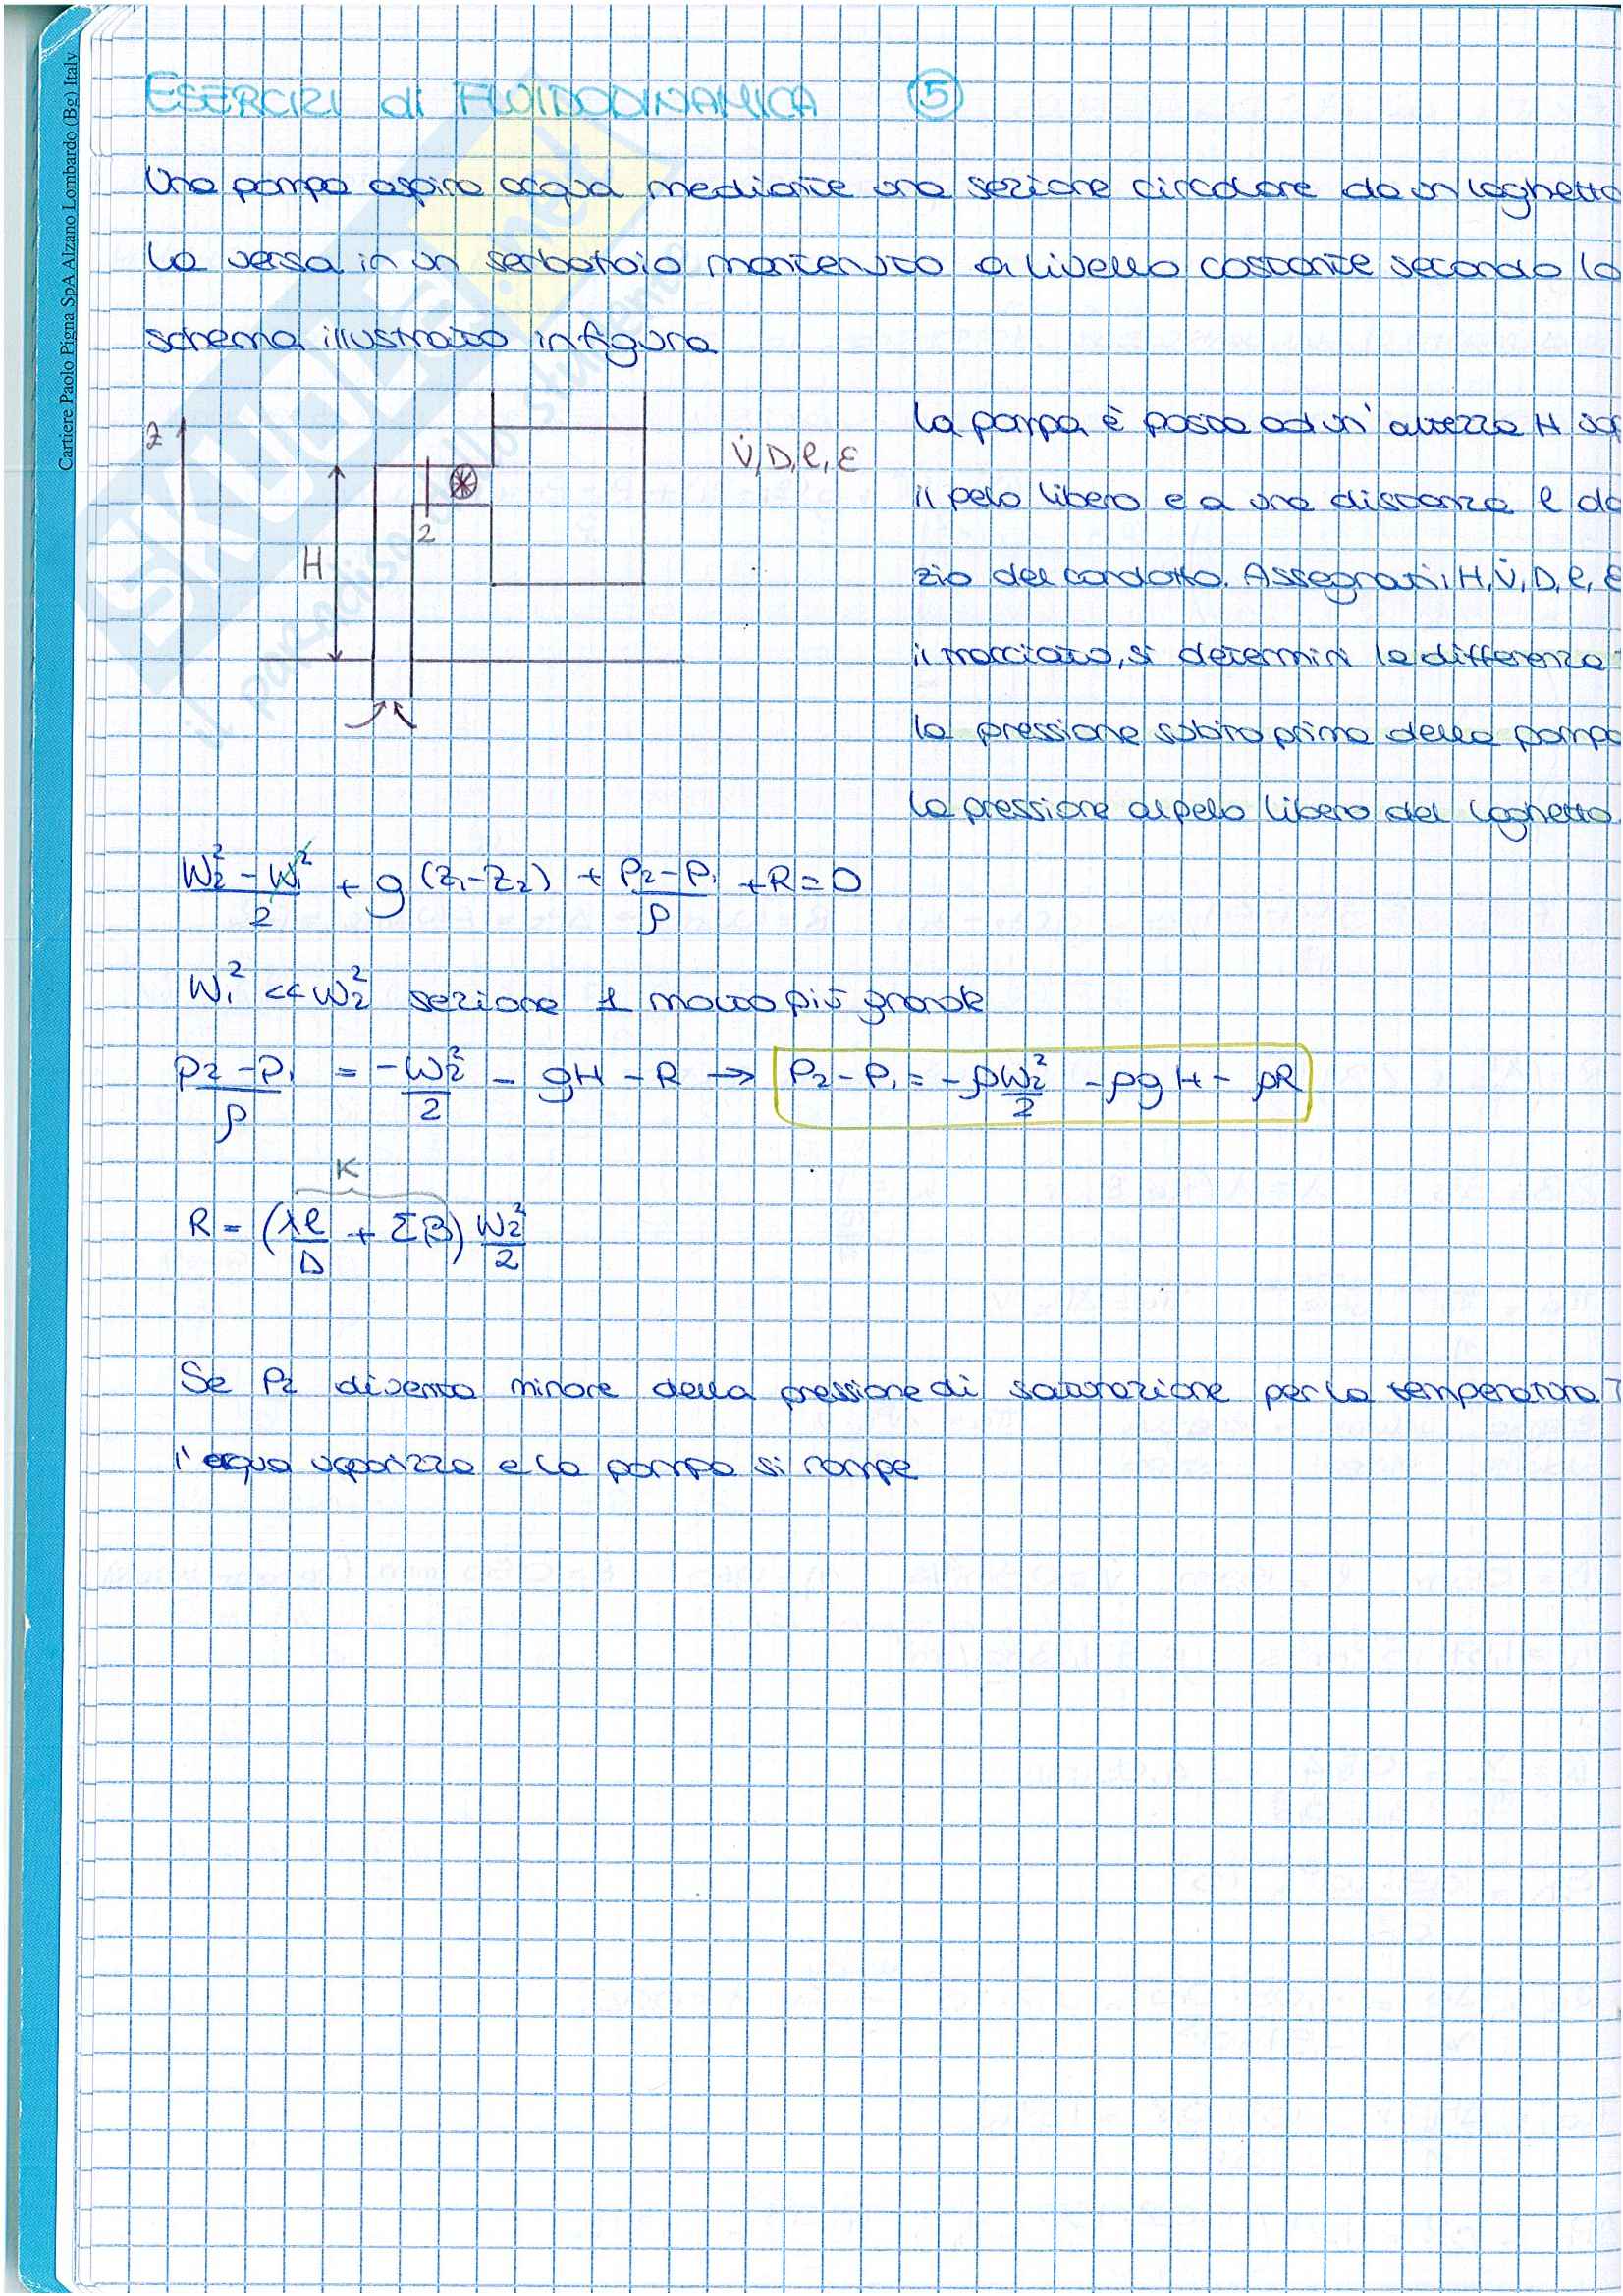 Cartiere Paolo Pigna SpA Alzano Lombardo (Bg) Italy
ESERCIZI di FLUIDODINAMICA 5
Una pompa aspira acqua mediante una sezione circolare da un laghetto
la versa in un serbatoio mantenuto a livello costante secondo lo
schema illustrato in figura
z
H
2
V̇, D, l, ε
La pompa è posta ad un'altezza H
il pelo libero e a una distanza l
zio del condotto. Assegnati, H, V̇, D, l, ε
il tracciato, si determini la differenza
la pressione subito prima della pompa
la pressione al pelo libero del laghetto.
(W₂² - W₁²)/2 + g (z₁-z₂) + (P₂-P₁)/ρ + R = 0
W₁² << W₂² sezione 1 molto più grande
(P₂-P₁)/ρ = -W₂²/2 - gH - R → P₂-P₁ = -ρW₂²/2 - ρgH - ρR
K
R = (λl/D + Σβ) W₂²/2
Se P₂ diventa minore della pressione di saturazione per la temperatura T
l'acqua vaporizza e la pompa si rompe
SKUOLA.net
il paradiso dello studente